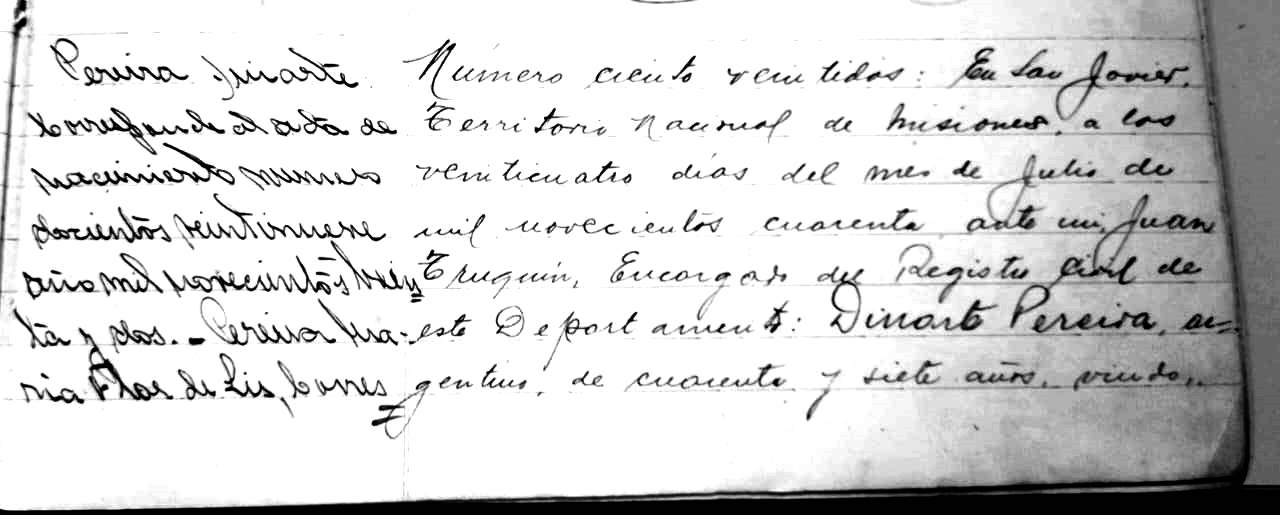 Pereira Duarte
Corresponde al acta de
nacimiento numero
docientos veintinueve
año mil novecientos trein=
ta y dos. - Pereira Ma-
ria Flor de Lis, Corres=
Número ciento veintidos: En San Javier,
Territorio Nacional de Misiones, a los
veinticuatro días del mes de Julio de
mil novecientos cuarenta, ante mi, Juan
Truquin, Encargado del Registro Civil de
este Departamento: Dinarte Pereira, ar=
gentino, de cuarenta y siete años, viudo,